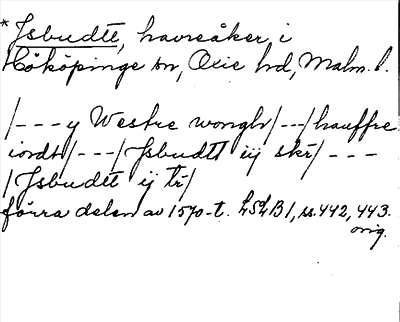 *Jsbudtt, havreåker i
Hököpinge sn, Oxie hd, Malm. l.
/---y Westre wongh/---/hauffre
iordt/---/Jsbudtt iij skr/---
/Jsbudtt ij tr/
förra delen av 1570-t. LSLB1, ss. 442, 443.
orig.